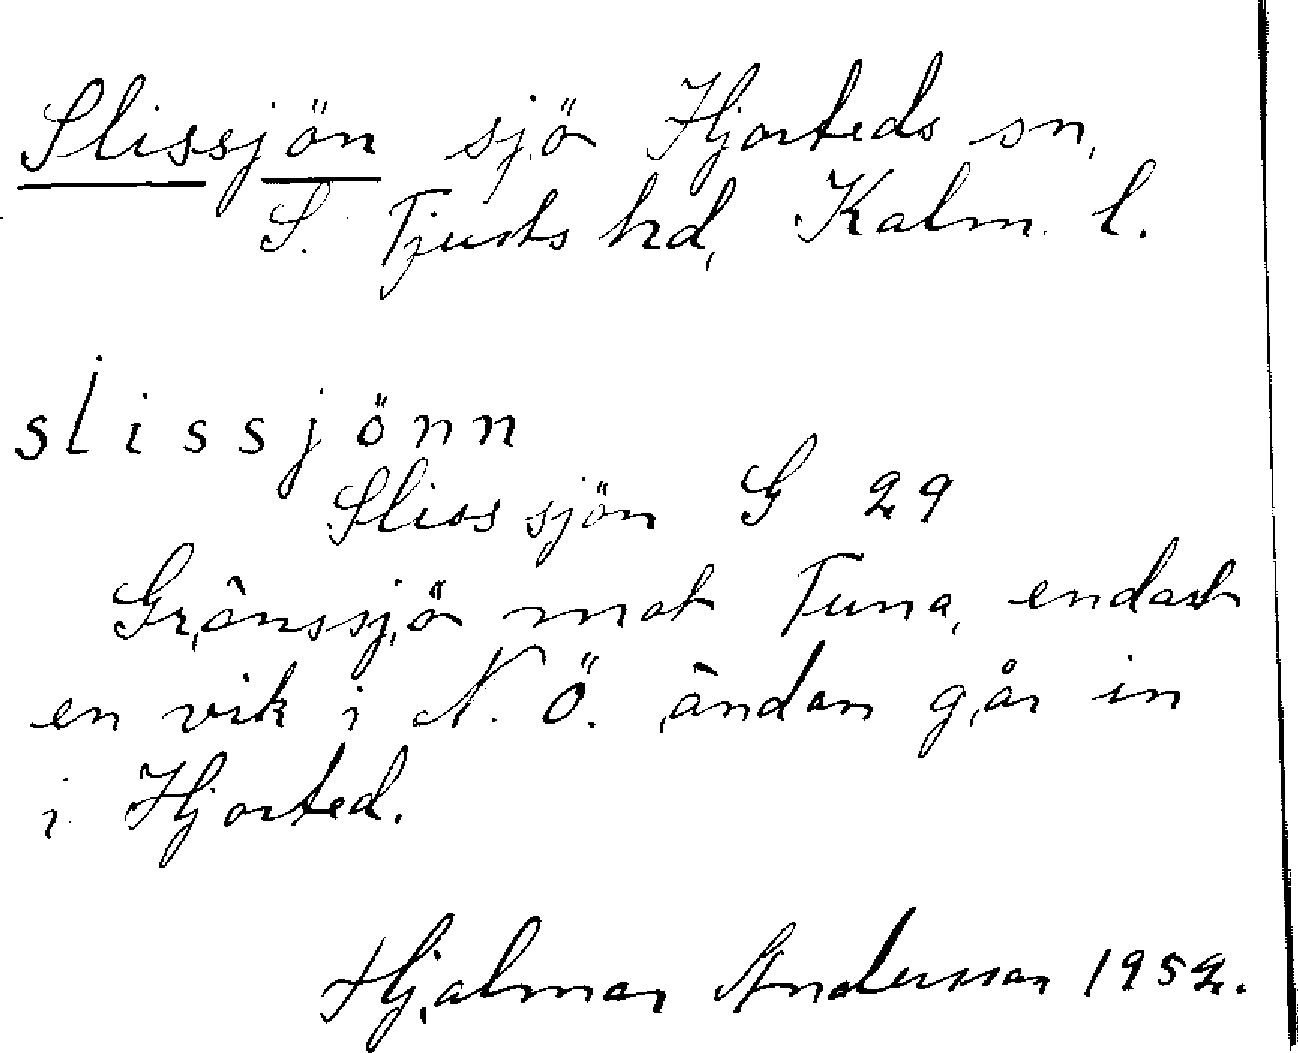 Slissjön sjö Hjorteds sn,
S. Tjusts hd, Kalm. l.
slissjönn
Slissjön G 29
Gränssjö mot Tuna, endast
en vik i N. Ö. ändan går in
i Hjorted.
Hjalmar Andersson 1952.